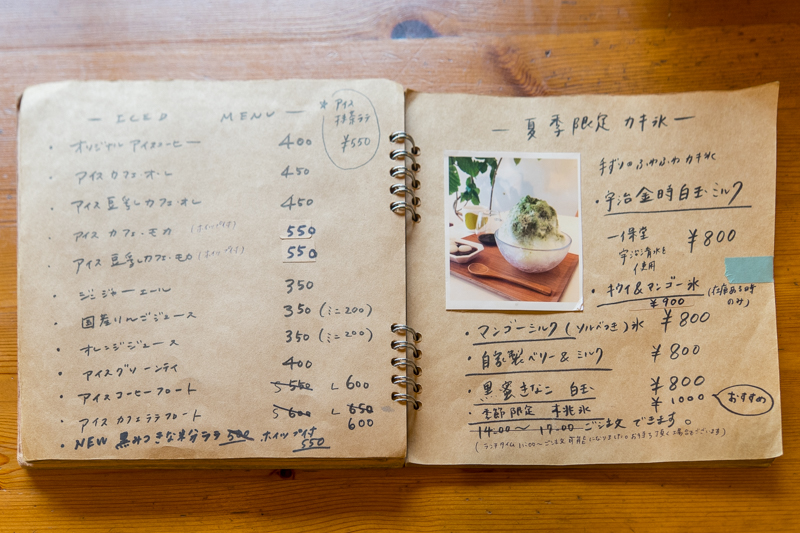 — ICED MENU —
* アイス
抹茶ラテ
¥550
・オリジナル アイスコーヒー 400
・アイス カフェ・オ・レ 450
・アイス 豆乳カフェ・オ・レ 450
・アイス カフェ・モカ (ホイップ付) 550
・アイス 豆乳カフェ・モカ (ホイップ付) 550
・ジンジャーエール 350
・国産りんごジュース 350 (ミニ 200)
・オレンジジュース 350 (ミニ 200)
・アイスグリーンティ 400
・アイスコーヒーフロート S 550 L 600
・アイスカフェラテフロート S 600 L 650
600
・NEW 黒みつきな粉ラテ 500 ホイップ付
550
— 夏季限定 カキ氷 —
手ずりのふわふわ カキ氷
・宇治金時白玉ミルク
一保堂 ¥800
宇治清水を
使用
・キウイ&マンゴー氷 (在庫ある時
のみ)
¥900
・マンゴーミルク (ソルベつき) 氷 ¥800
・自家製ベリー&ミルク ¥800
・黒蜜きなこ 白玉 ¥800
・季節限定 木桃氷 ¥1000 おすすめ
14:00〜17:00 ご注文できます。